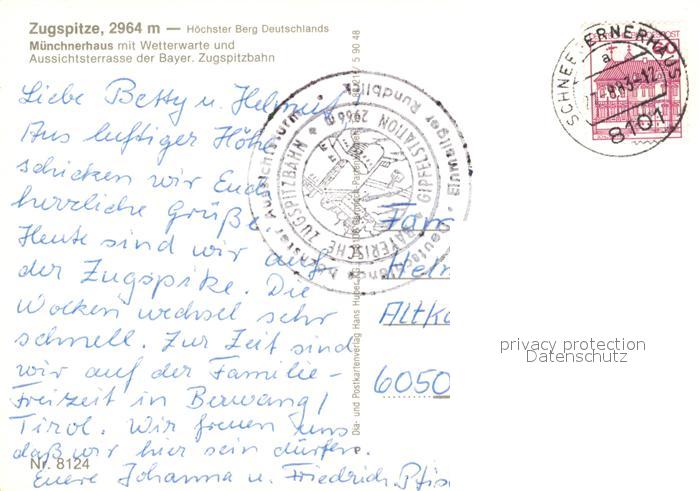 Zugspitze, 2964 m — Höchster Berg Deutschlands
Münchnerhaus mit Wetterwarte und
Aussichtsterrasse der Bayer. Zugspitzbahn
Liebe Betty u. Helmut,
Aus luftiger Höhe
schicken wir Euch
herzliche Grüße.
Heute sind wir auf
der Zugspitze. Die
Wolken wechsel sehr
schnell. Zur Zeit sind
wir auf der Familie-
Freizeit in Berwang/
Tirol. Wir freuen uns
daß wir hier sein dürfen.
Eure Johanna u. Friedrich Pfis
Nr. 8124
BAYERISCHE ZUGSPITZBAHN
GIPFELSTATION 2966 m
Aussichtsturm
einmaliger Rundblick
Dia- und Postkartenverlag Hans Huber
5 90 48
SCHNEEFERNERHAUS
a
8101
Fam
Helm
Altkö
6050
privacy protection
Datenschutz